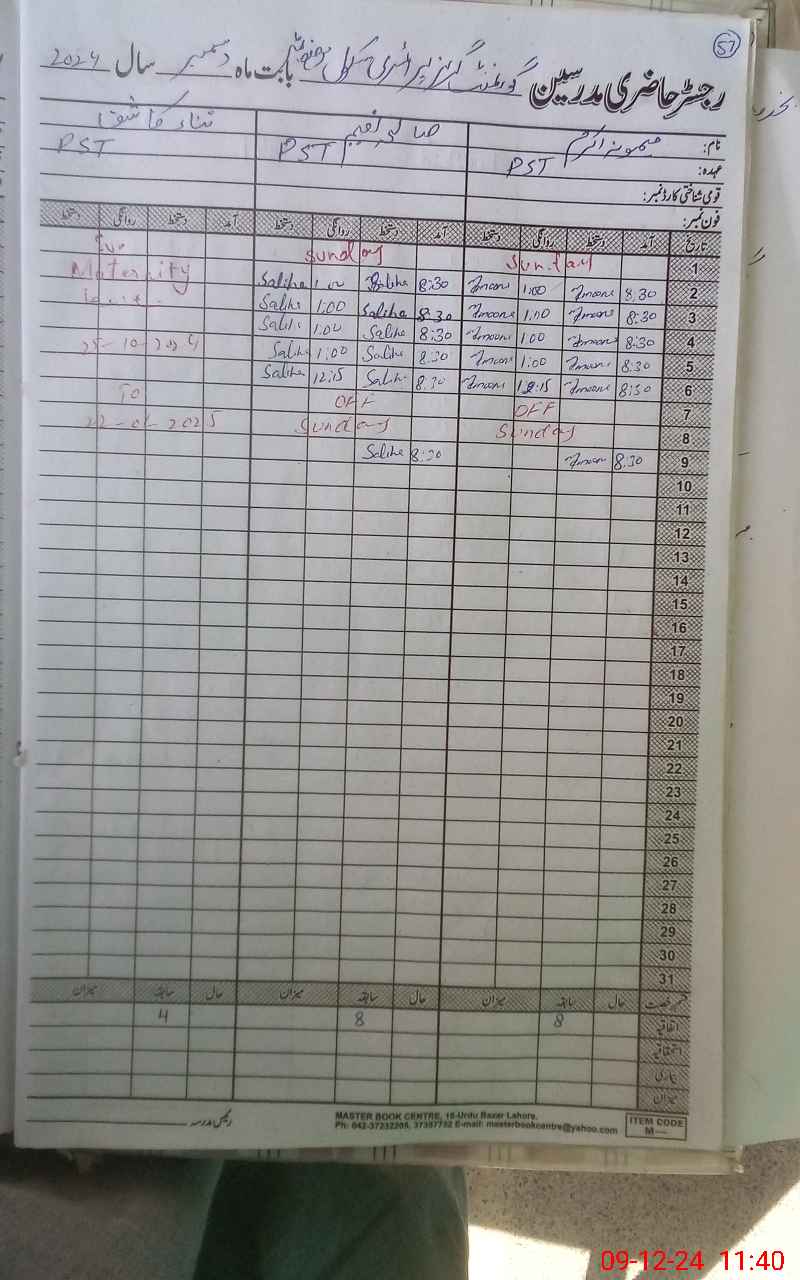 57
رجسٹر حاضری مدرسین گورنمنٹ گرلز پرائمری سکول بابت ماہ دسمبر سال 2024
نام: میمونہ اکرم صالحہ نعیم ثناء کاشف
عہدہ: PST PST PST
قومی شناختی کارڈ نمبر:
فون نمبر:
تاریخ آمد دستخط روانگی دستخط آمد دستخط روانگی دستخط آمد دستخط روانگی دستخط
1 Sunday Sunday
2 8:30 1:00 8:30 Saliha Saliha Maternity
3 8:30 1:00 8:30 Saliha 1:00 Saliha
4 8:30 1:00 8:30 Saliha 1:00 Saliha
5 8:30 1:00 8:30 Saliha 1:00 Saliha 25-10-2024
6 8:30 12:15 8:30 Saliha 12:15 Saliha
7 OFF OFF To
8 Sunday Sunday 22-01-2025
9 8:30 8:30 Saliha
10
11
12
13
14
15
16
17
18
19
20
21
22
23
24
25
26
27
28
29
30
31
قسم رخصت حال سابقہ میزان حال سابقہ میزان حال سابقہ میزان
اتفاقیہ 8 8 4
استحقاقیہ
بیماری
میزان
رئیس مدرسہ
MASTER BOOK CENTRE, 16-Urdu Bazar Lahore.
Ph: 042-37232205, 37357752 E-mail: masterbookcentre@yahoo.com
ITEM CODE
M—
09-12-24 11:40